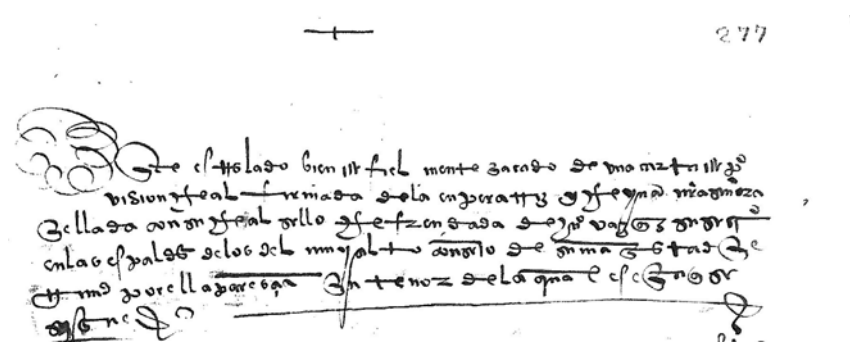 277
Este es traslado bien y fielmente sacado de una carta y pro
vision Real firmada de la enperatriz y Reyna nra señora
Sellada con su Real sello Refrendada de jnº vazqz su srº
en las espaldas de los del muy alto consejo de su mag estad Se
por ella paresçia Su tenor de la qual es este que se
sigue